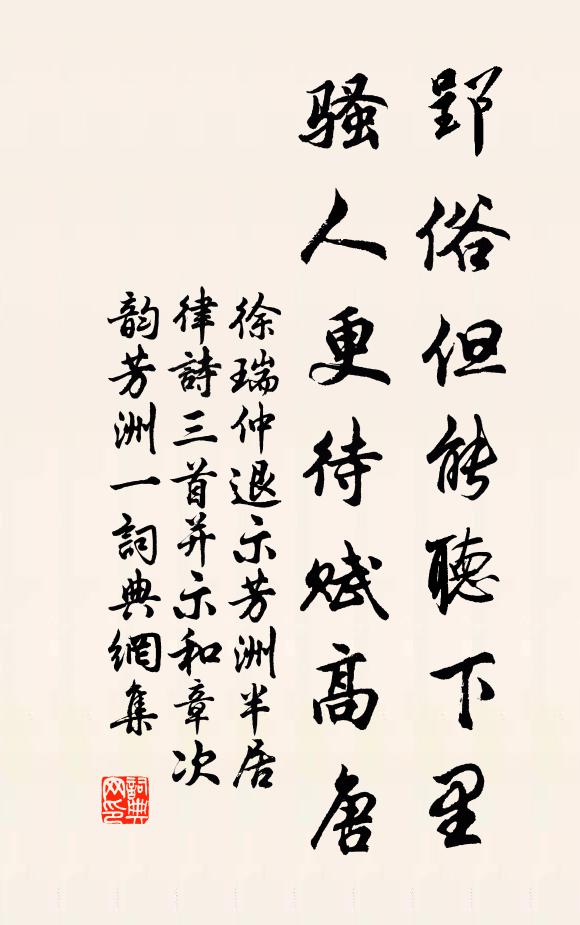 郢俗但能聽下里
騷人更待賦高唐
徐瑞仲退示芳洲半居
律詩三首并示和章次
韵芳洲一詞典網集
詞典网印